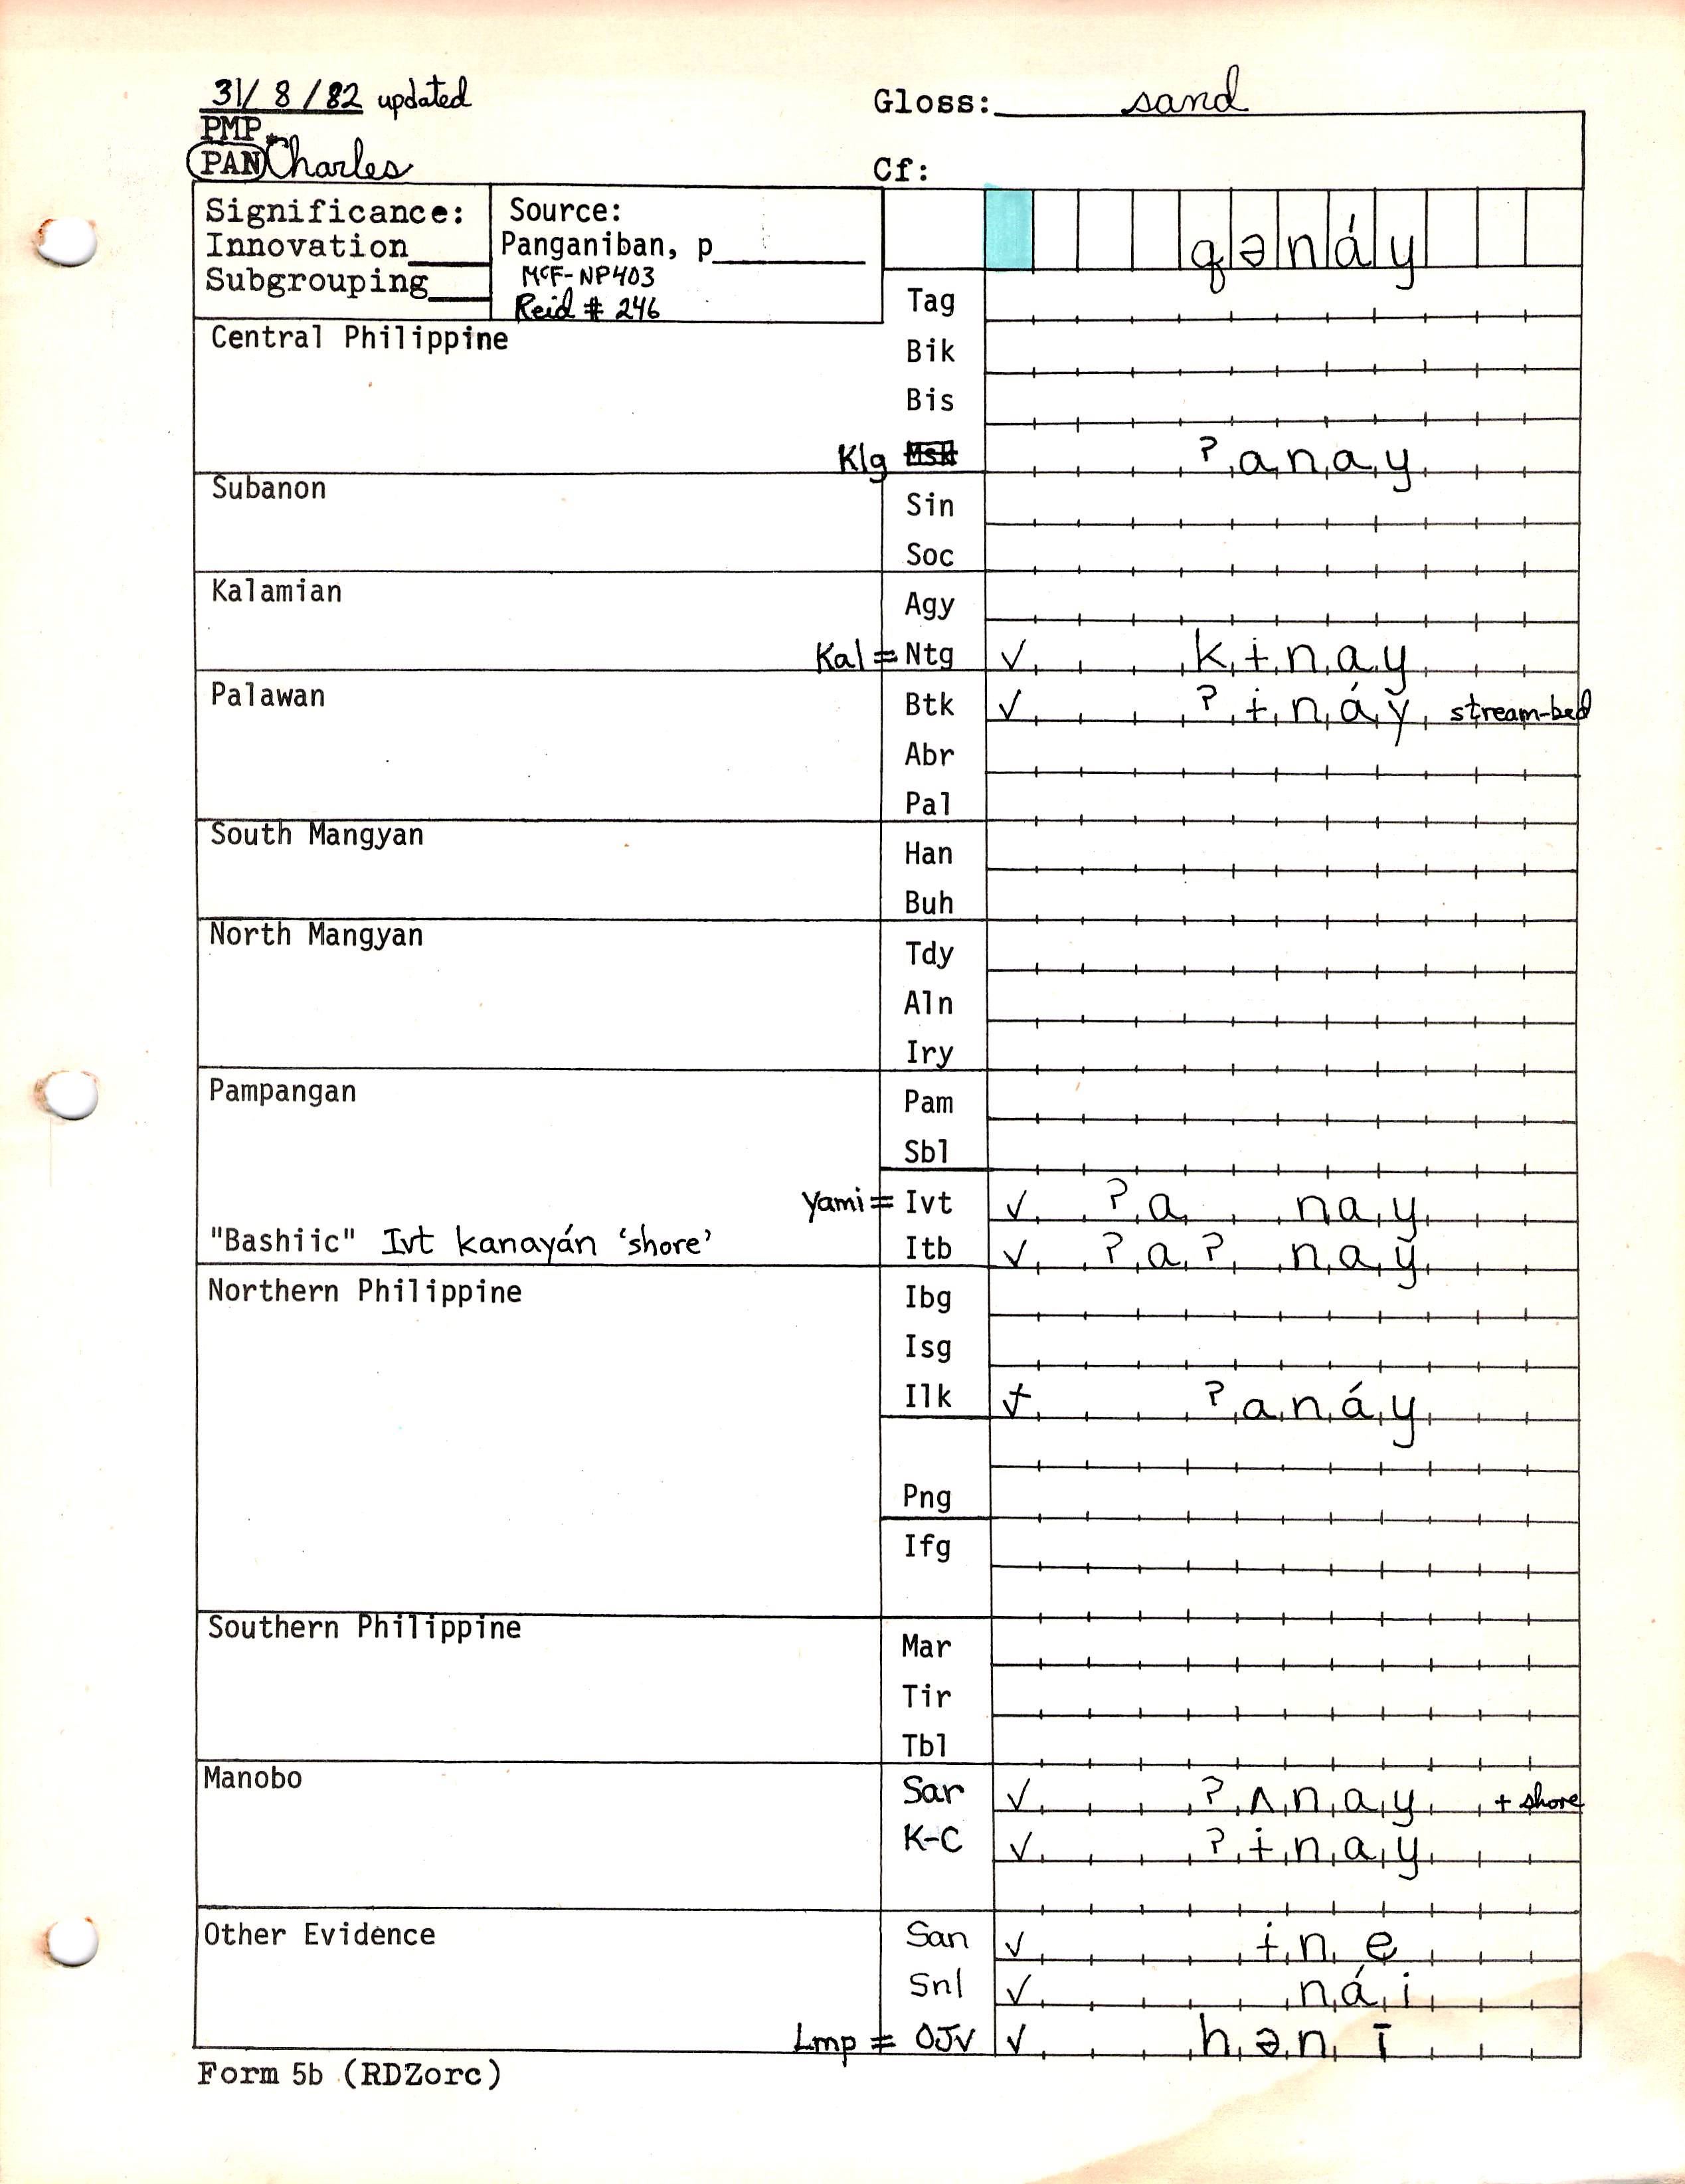 31/8/82 updated
Gloss: sand
PMP
PAN *Charles
Cf:
Significance:
Innovation____
Subgrouping____
Source:
Panganiban, p____
McF-NP403
Reid # 246
qənáy
Tag
Central Philippine
Bik
Bis
Klg Msk ?anay
Subanon
Sin
Soc
Kalamian
Agy
Kal = Ntg ✓ kɨnay
Palawan
Btk ✓ ?ɨnáy stream-bed
Abr
Pal
South Mangyan
Han
Buh
North Mangyan
Tdy
Aln
Iry
Pampangan
Pam
Sbl
Yami = Ivt ✓ ?a nay
"Bashiic" Ivt kanayán ‘shore’
Itb ✓ ?a? nay
Northern Philippine
Ibg
Isg
Ilk ✓ ?anáy
Png
Ifg
Southern Philippine
Mar
Tir
Tbl
Manobo
Sar ✓ ?ʌnay + shore
K-C ✓ ?ɨnay
Other Evidence
San ✓ ɨne
Snl ✓ nái
Lmp = OJV ✓ hənī
Form 5b (RDZorc)